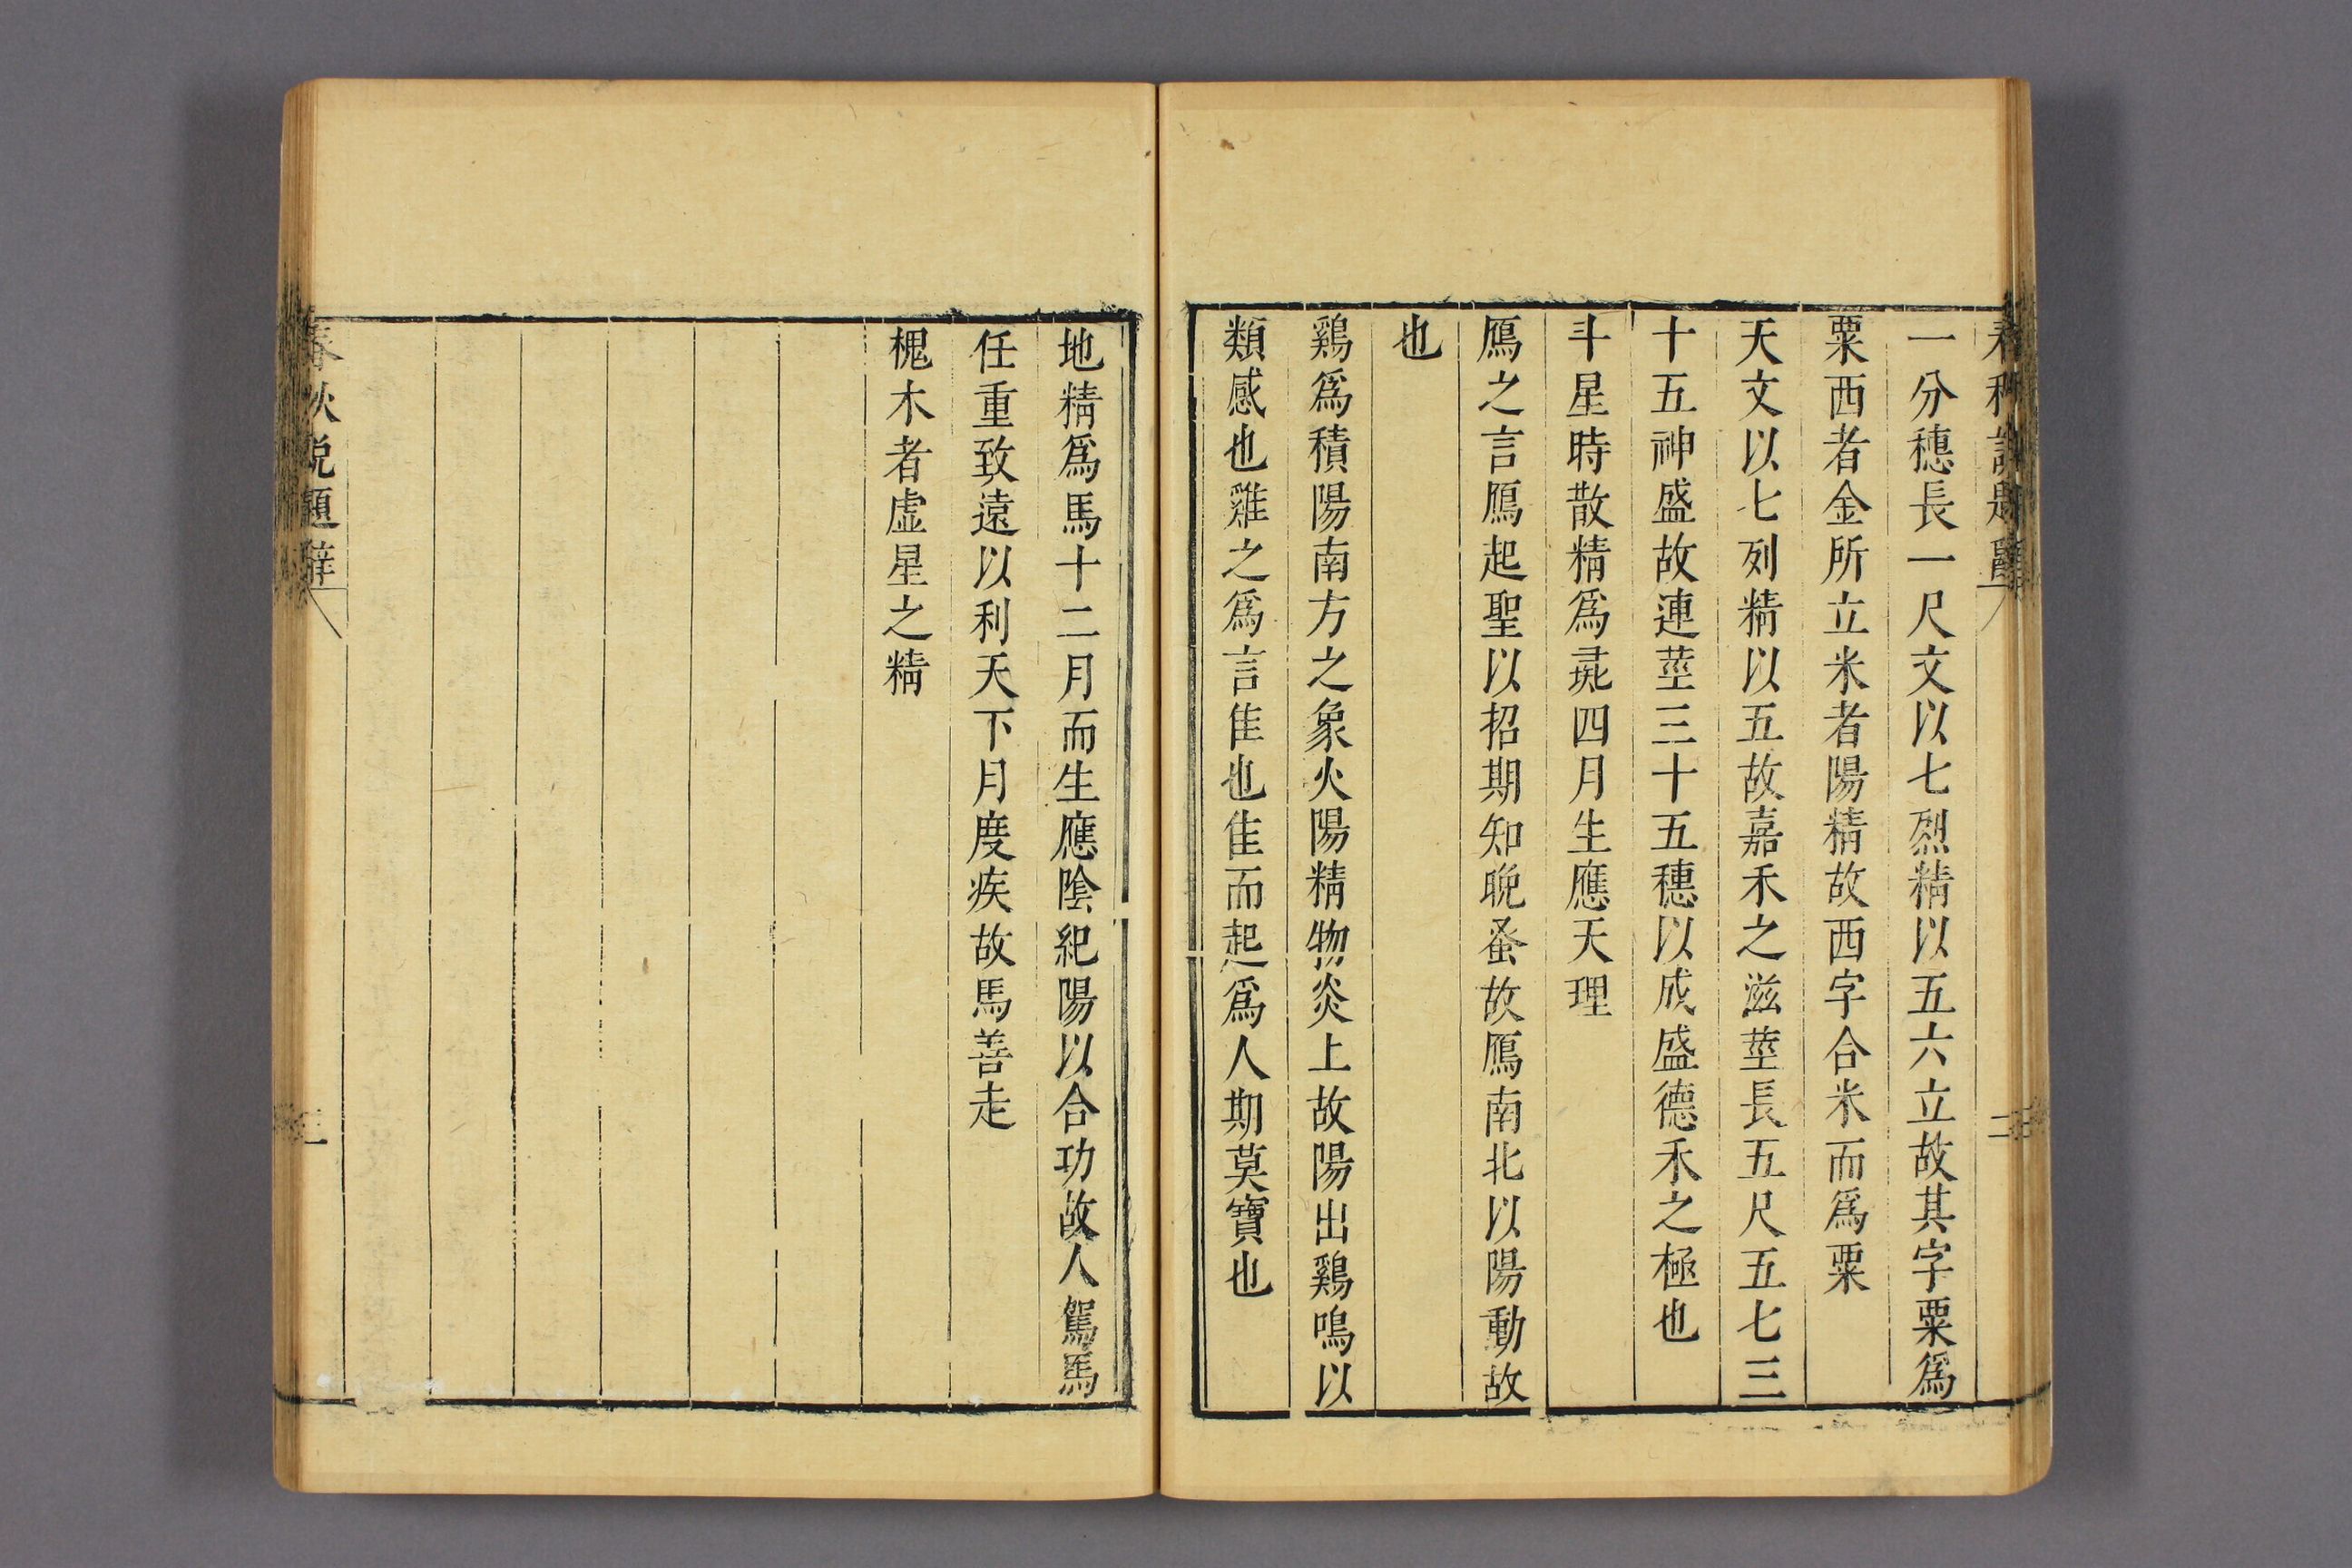 春秋說題辭
二
一分穗長一尺文以七烈精以五六立故其字粟爲
粟西者金所立米者陽精故西字合米而爲粟
天文以七列精以五故嘉禾之滋莖長五尺五七三
十五神盛故連莖三十五穗以成盛德禾之極也
斗星時散精爲彘四月生應天理
鴈之言鴈起聖以招期知晚蚤故鴈南北以陽動故
也
鷄爲積陽南方之象火陽精物炎上故陽出鷄鳴以
類感也雞之爲言隹也隹而起爲人期莫寶也
地精爲馬十二月而生應陰紀陽以合功故人駕馬
任重致遠以利天下月度疾故馬善走
槐木者虛星之精
春秋說題辭
三